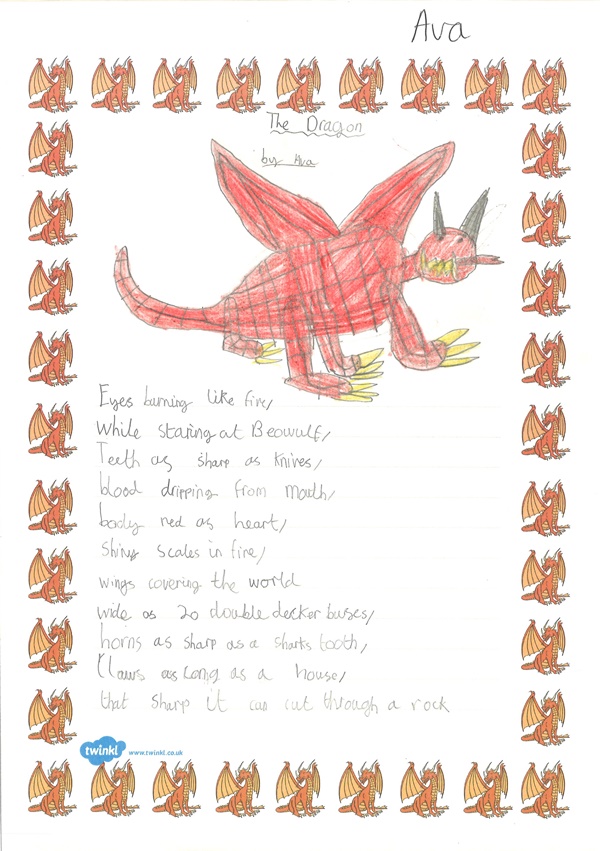 Ava
The Dragon
by Ava
Eyes burning like fire,
While staring at Beowulf,
Teeth as sharp as knives,
blood dripping from mouth,
body red as heart,
Shiny scales in fire,
wings covering the world
wide as 20 double decker buses,
horns as sharp as a sharks tooth,
Claws as long as a house,
that sharp it can cut through a rock
twinkl www.twinkl.co.uk